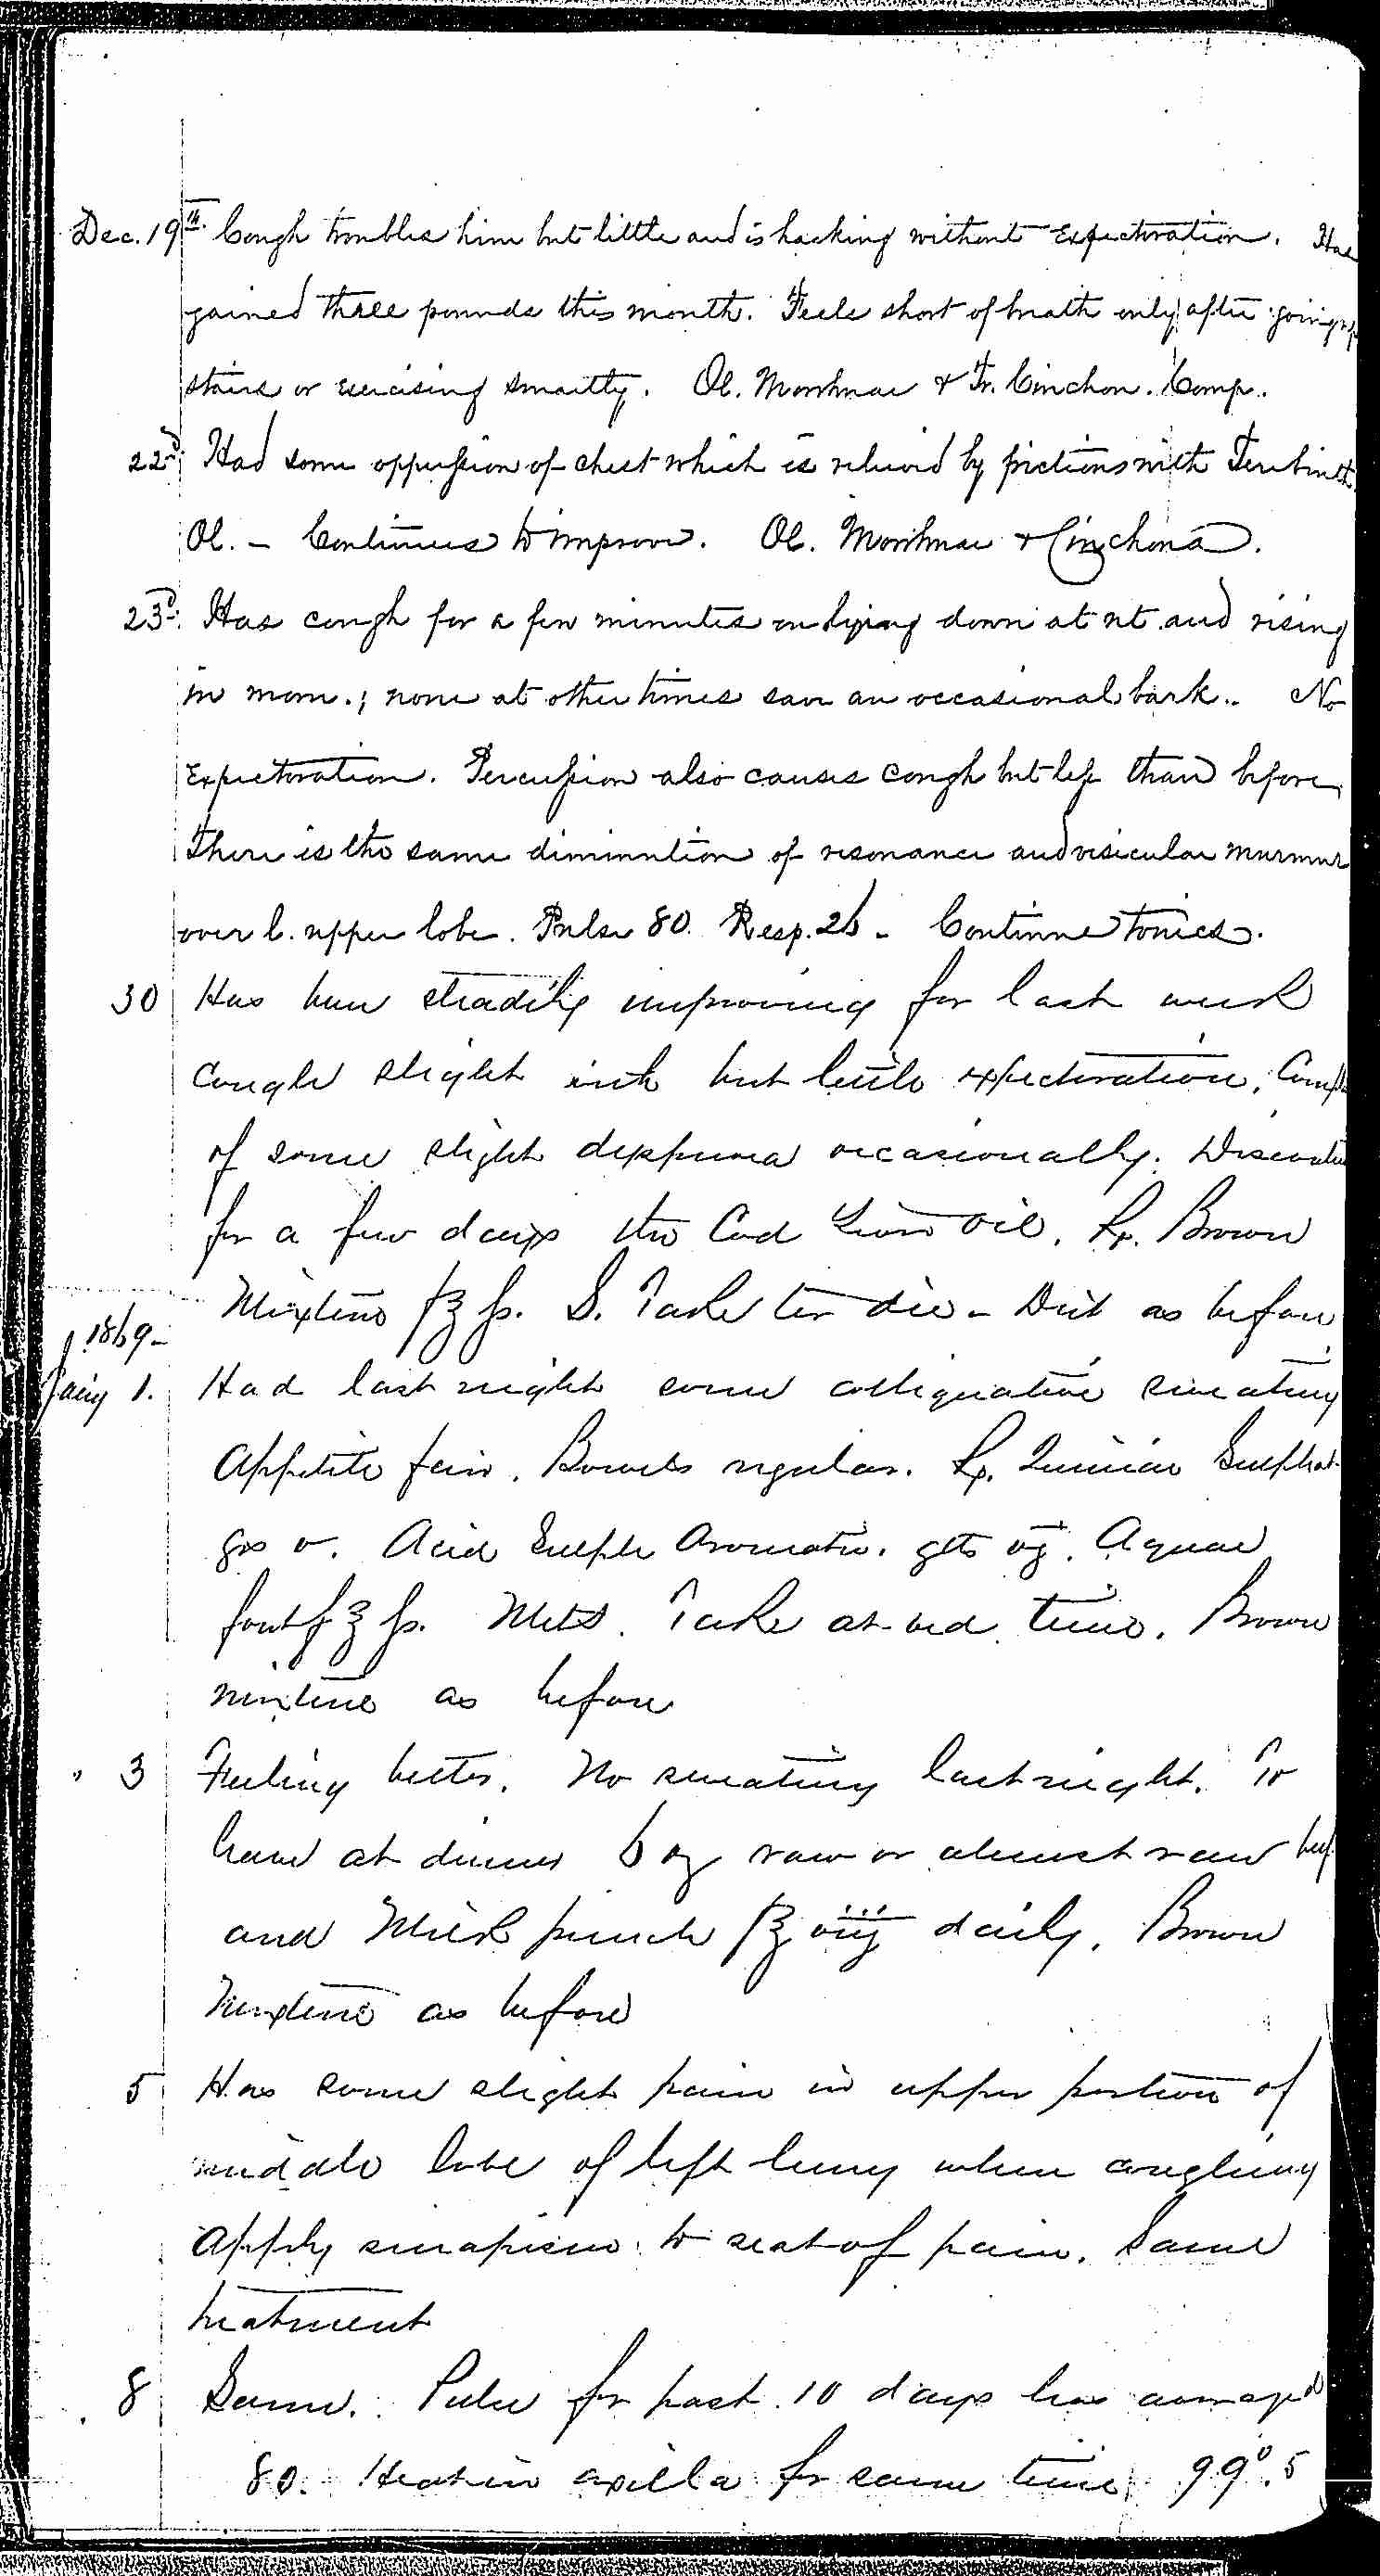 Dec. 19th. Cough troubles him but little and is hacking without expectoration. Has
gained three pounds this month. Feels short of breath only after going up
stairs or exercising smartly. Ol. Morrhuae & Tr. Cinchon. Comp.
22d: Had some oppression of chest which is relieved by frictions with Terebinth.
Ol. – Continues to improve. Ol. Morrhuae & Cinchona.
23d: Has cough for a few minutes on lying down at nt. and rising
in morn.; none at other times save an occasional bark. No
Expectoration. Percussion also causes cough but less than before.
There is the same diminution of resonance and vesicular murmur
over l. upper lobe. Pulse 80. Resp. 26 – Continue tonics.
30 Has been steadily improving for last week
Cough slight with but little expectoration. Compl
of some slight dyspnoea occasionally. Discontin
for a few days the Cod Liver oil. Rx. Brown
Mixture f℥ ss. S. Take ter die – Diet as before
1869 –
Jany 1. Had last night some colliquative sweating
Appetite fair. Bowels regular. Rx. Quiniae Sulphat
grs v. Acid Sulph Aromatic. gtts vj. Aquae
font f℥ ss. Take at bed time. Brown
mixture as before
" 3 Feeling better. No sweating last night. To
have at dinner 6 oz raw or almost raw beef
and Milk punch f℥ viij daily. Brown
Mixture as before
5 Has some slight pain in upper portion of
middle lobe of left lung when coughing
Apply sinapism to seat of pain. Same
treatment
8 Same. Pulse for past 10 days has averaged
80. Heat in axilla for same time 99°.5